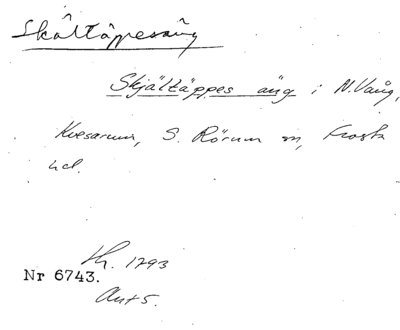 Skältäppesäng
Skjältäppes äng i N. Vång,
Kvesarum, S. Rörum sn, Frosta
hd.
Lh. 1793
Nr 6743.
Akt 5.